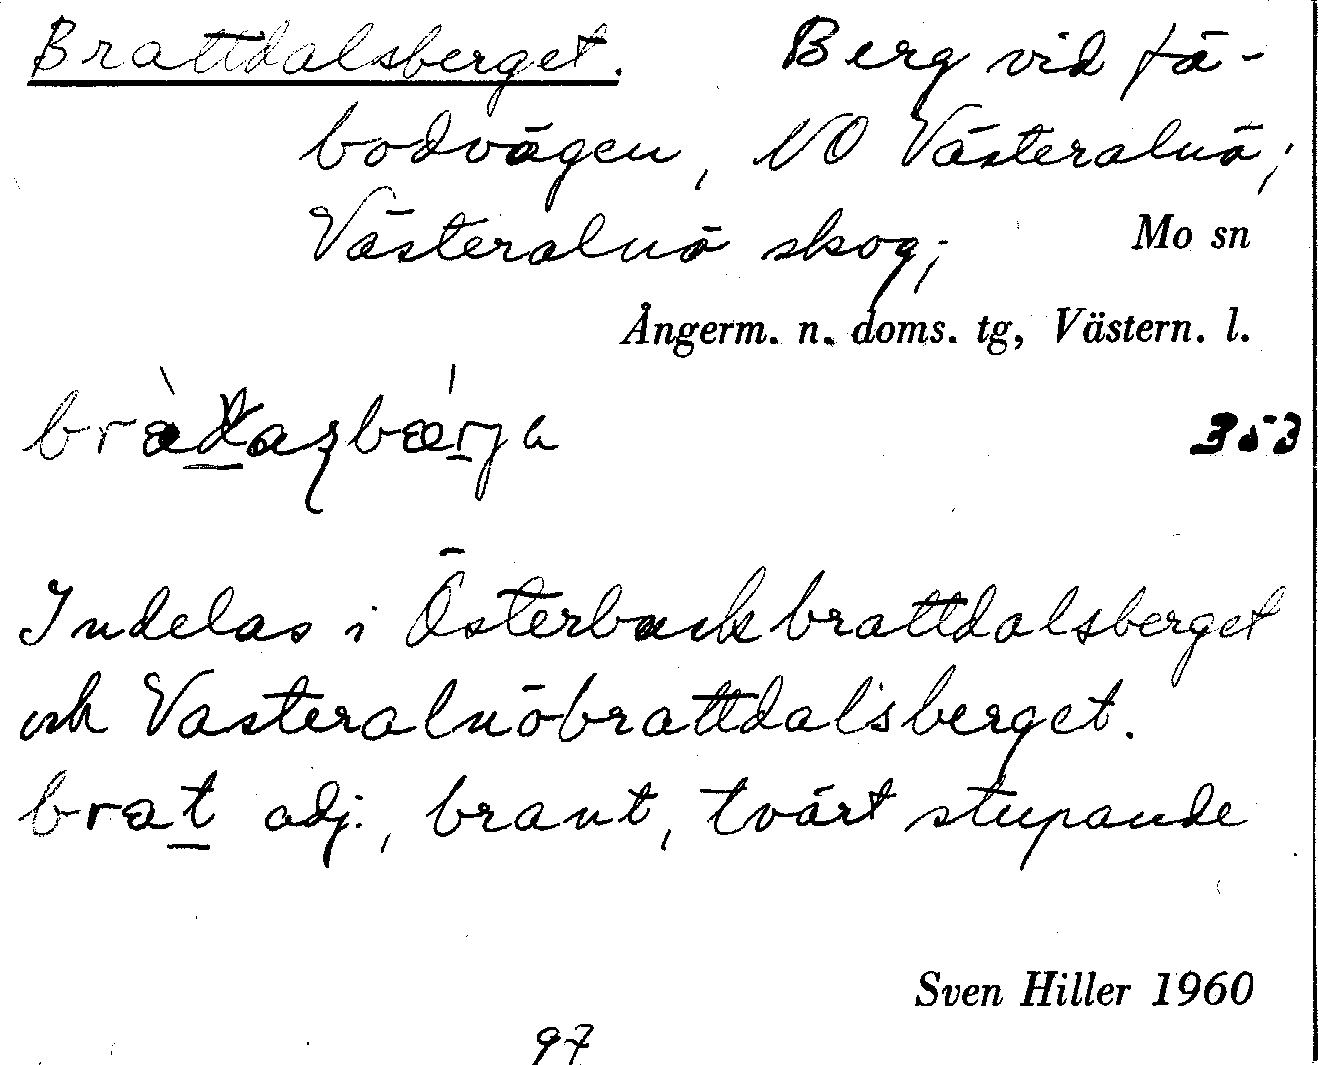 Brattdalsberget. Berg vid fä-
bodvägen, NO Västeralnö;
Västeralnö skog; Mo sn
Ångerm. n. doms. tg, Västern. l.
353
Indelas i Österbackbrattdalsberget
och Västeralnöbrattdalsberget.
brat adj., brant, tvärt stupande
Sven Hiller 1960
97